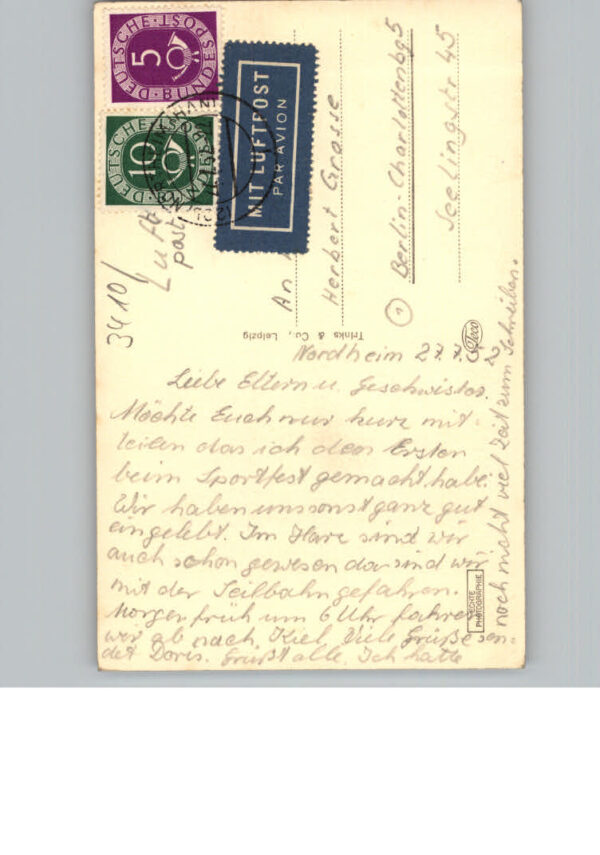 DEUTSCHE BUNDESPOST
5
DEUTSCHE BUNDESPOST
10
MIT LUFTPOST
PAR AVION
Luft
post
3410/
An
Herbert Grosse
Berlin-Charlottenbg5
Seelingstr 45
1
Trinks & Co., Leipzig
Teco
Nordheim 27.7.52
Liebe Eltern u. Geschwister.
Möchte Euch nur kurz mit-
teilen das ich den Ersten
beim Sportfest gemacht habe.
Wir haben uns sonst ganz gut
eingelebt. Im Harz sind wir
auch schon gewesen da sind wir
mit der Seilbahn gefahren.
Morgen früh um 6 Uhr fahren
wir ab nach Kiel. Viele Grüße sen-
det Doris. Grüßt alle. Ich hatte
noch nicht viel Zeit zum Schreiben.
ECHTE
PHOTOGRAPHIE